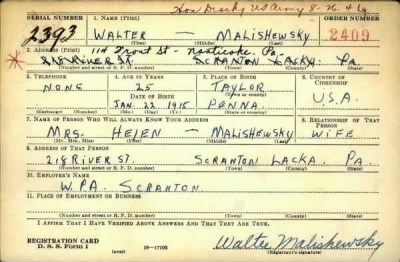 Hon Disch US Army 8-26-46
SERIAL NUMBER 1. NAME (Print) ORDER NUMBER
2393 WALTER — MALISHEWSKY 2409
(First) (Middle) (Last)
114 Front St - Nanticoke, Pa.
2. ADDRESS (Print)
218 RIVER ST. SCRANTON LACKA. PA.
(Number and street or R. F. D. number) (Town) (County) (State)
3. TELEPHONE 4. AGE IN YEARS 5. PLACE OF BIRTH 6. COUNTRY OF CITIZENSHIP
NONE 25 TAYLOR
DATE OF BIRTH (Town or county)
JAN. 22 1915 PENNA. U.S.A.
(Exchange) (Number) (Mo.) (Day) (Yr.) (State or country)
7. NAME OF PERSON WHO WILL ALWAYS KNOW YOUR ADDRESS 8. RELATIONSHIP OF THAT PERSON
MRS. HELEN — MALISHEWSKY WIFE
(Mr., Mrs., Miss) (First) (Middle) (Last)
9. ADDRESS OF THAT PERSON
218 RIVER ST. SCRANTON LACKA. PA.
(Number and street or R. F. D. number) (Town) (County) (State)
10. EMPLOYER'S NAME
W.P.A. SCRANTON
11. PLACE OF EMPLOYMENT OR BUSINESS
(Number and street or R. F. D. number) (Town) (County) (State)
I AFFIRM THAT I HAVE VERIFIED ABOVE ANSWERS AND THAT THEY ARE TRUE.
REGISTRATION CARD
D. S. S. Form 1 (over) 16—17105 Walter Malishewsky
(Registrant's signature)